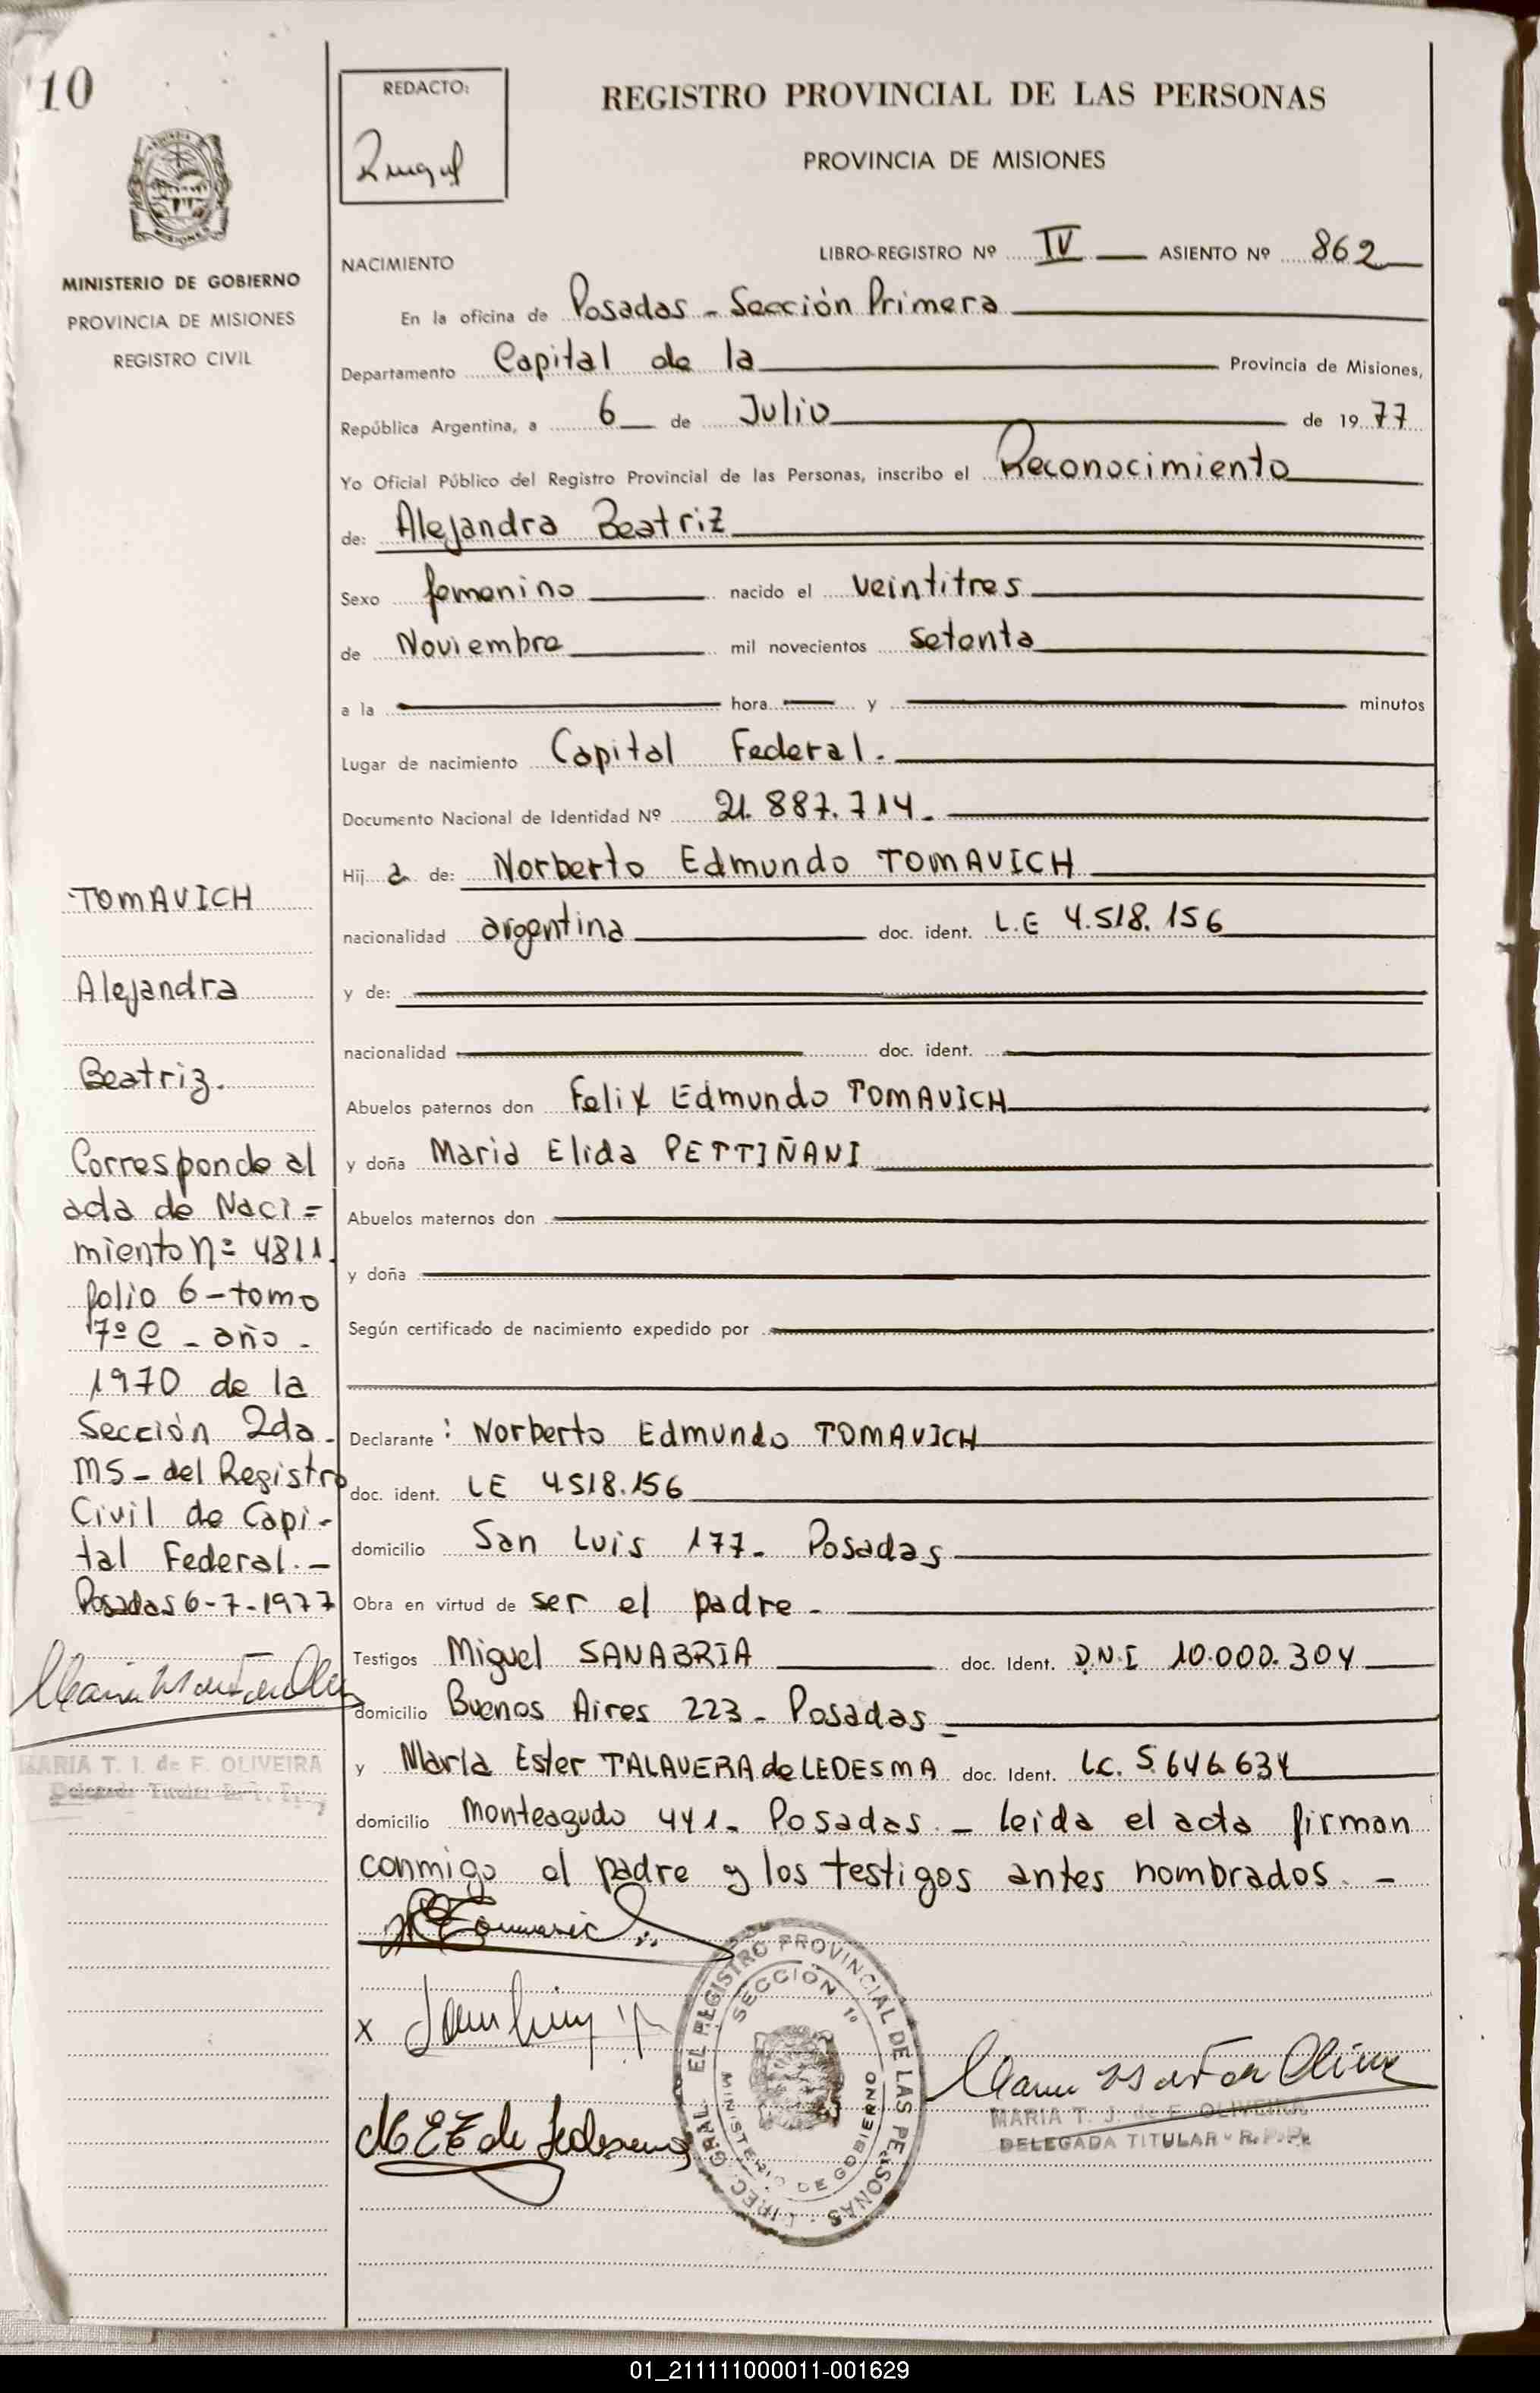 10
REDACTO:
REGISTRO PROVINCIAL DE LAS PERSONAS
PROVINCIA DE MISIONES
MINISTERIO DE GOBIERNO
PROVINCIA DE MISIONES
REGISTRO CIVIL
NACIMIENTO
LIBRO-REGISTRO Nº IV ASIENTO Nº 862
En la oficina de Posadas - Sección Primera
Departamento Capital de la Provincia de Misiones,
República Argentina, a 6 de Julio de 1977
Yo Oficial Público del Registro Provincial de las Personas, inscribo el Reconocimiento
de: Alejandra Beatriz
Sexo femenino nacido el veintitres
de Noviembre mil novecientos setenta
a la hora y minutos
Lugar de nacimiento Capital Federal.
Documento Nacional de Identidad Nº 21.887.714.
Hija de: Norberto Edmundo TOMAVICH
nacionalidad argentina doc. ident. L.E 4.518.156
y de:
nacionalidad doc. ident.
Abuelos paternos don Felix Edmundo TOMAVICH
y doña Maria Elida PETTIÑANI
Abuelos maternos don
y doña
Según certificado de nacimiento expedido por
Declarante: Norberto Edmundo TOMAVICH
doc. ident. LE 4518.156
domicilio San Luis 177- Posadas
Obra en virtud de ser el padre-
Testigos Miguel SANABRIA doc. Ident. D.N.I 10.000.304
domicilio Buenos Aires 223- Posadas
y María Ester TALAVERA de LEDESMA doc. Ident. LC. 5.646.634
domicilio Monteagudo 441- Posadas.- leida el acta firman
conmigo el padre y los testigos antes nombrados.-
TOMAVICH
Alejandra
Beatriz.
Corresponde al
acta de Naci=
miento nº 4811.
folio 6-tomo
7º C - año -
1970 de la
Sección 2da-
MS- del Registro
Civil de Capi-
tal Federal.-
Posadas 6-7-1977
MARIA T. I. de F. OLIVEIRA
Delegada Titular R. P. P.
x
M E T de Ledesma
DIREC. GRAL. EL REGISTRO PROVINCIAL DE LAS PERSONAS
SECCIÓN 1º
MINISTERIO DE GOBIERNO
MARIA T. J. de F. OLIVEIRA
DELEGADA TITULAR - R.P.P.
01_211111000011-001629